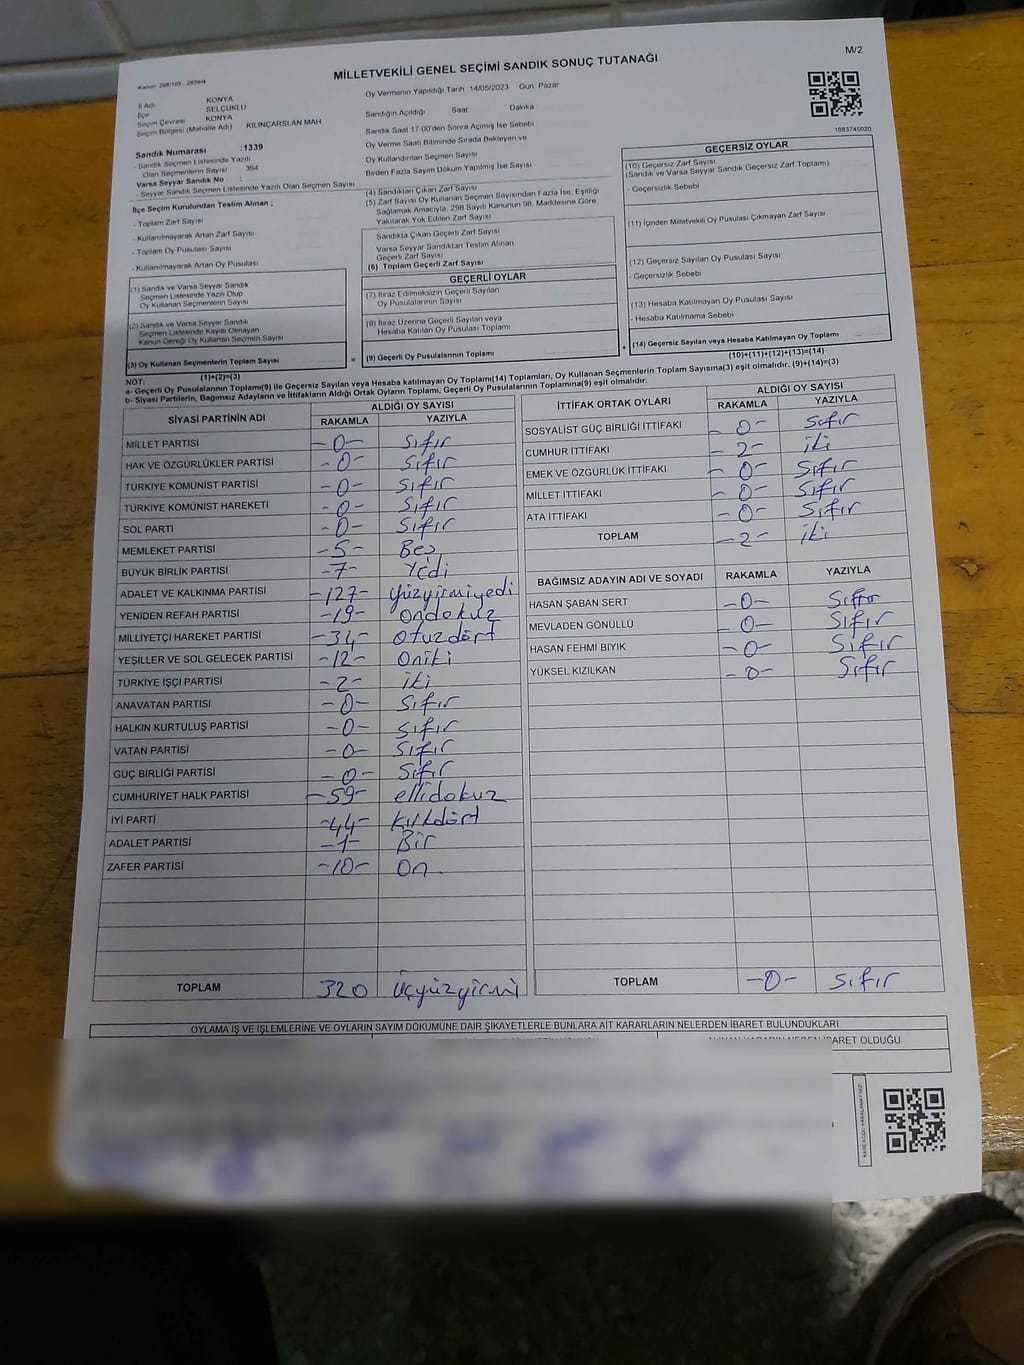 M/2
Kanun: 298/105 , 2839/4
MİLLETVEKİLİ GENEL SEÇİMİ SANDIK SONUÇ TUTANAĞI
İl Adı KONYA
İlçe SELÇUKLU
Seçim Çevresi KONYA
Seçim Bölgesi (Mahalle Adı) KILINÇARSLAN MAH
Sandık Numarası :1339
- Sandık Seçmen Listesinde Yazılı
Olan Seçmenlerin Sayısı 364
Varsa Seyyar Sandık No :
- Seyyar Sandık Seçmen Listesinde Yazılı Olan Seçmen Sayısı
İlçe Seçim Kurulundan Teslim Alınan ;
- Toplam Zarf Sayısı
- Kullanılmayarak Artan Zarf Sayısı
- Toplam Oy Pusulası Sayısı
- Kullanılmayarak Artan Oy Pusulası
(1) Sandık ve Varsa Seyyar Sandık
Seçmen Listesinde Yazılı Olup
Oy Kullanan Seçmenlerin Sayısı
(2) Sandık ve Varsa Seyyar Sandık
Seçmen Listesinde Kayıtlı Olmayan
Kanun Gereği Oy Kullanan Seçmen Sayısı
(3) Oy Kullanan Seçmenlerin Toplam Sayısı
(1)+(2)=(3)
Oy Vermenin Yapıldığı Tarih 14/05/2023 Gün Pazar
Sandığın Açıldığı Saat Dakika
Sandık Saat 17:00'den Sonra Açmış İse Sebebi
Oy Verme Saati Bitiminde Sırada Bekleyen ve
Oy Kullandırılan Seçmen Sayısı
Birden Fazla Sayım Döküm Yapılmış İse Sayısı
(4) Sandıktan Çıkan Zarf Sayısı
(5) Zarf Sayısı Oy Kullanan Seçmen Sayısından Fazla İse, Eşitliği
Sağlamak Amacıyla, 298 Sayılı Kanunun 98. Maddesine Göre
Yakılarak Yok Edilen Zarf Sayısı
Sandıkta Çıkan Geçerli Zarf Sayısı
Varsa Seyyar Sandıktan Teslim Alınan
Geçerli Zarf Sayısı
(6) Toplam Geçerli Zarf Sayısı
GEÇERLİ OYLAR
(7) İtiraz Edilmeksizin Geçerli Sayılan
Oy Pusulalarının Sayısı
(8) İtiraz Üzerine Geçerli Sayılan veya
Hesaba Katılan Oy Pusulası Toplamı
= (9) Geçerli Oy Pusulalarının Toplamı +
1083745020
GEÇERSİZ OYLAR
(10) Geçersiz Zarf Sayısı
(Sandık ve Varsa Seyyar Sandık Geçersiz Zarf Toplamı)
- Geçersizlik Sebebi
(11) İçinden Milletvekili Oy Pusulası Çıkmayan Zarf Sayısı
(12) Geçersiz Sayılan Oy Pusulası Sayısı
- Geçersizlik Sebebi
(13) Hesaba Katılmayan Oy Pusulası Sayısı
- Hesaba Katılmama Sebebi
(14) Geçersiz Sayılan veya Hesaba Katılmayan Oy Toplamı
(10)+(11)+(12)+(13)=(14)
NOT:
a- Geçerli Oy Pusulalarının Toplamı(9) ile Geçersiz Sayılan veya Hesaba katılmayan Oy Toplamı(14) Toplamları, Oy Kullanan Seçmenlerin Toplam Sayısına(3) eşit olmalıdır. (9)+(14)=(3)
b- Siyasi Partilerin, Bağımsız Adayların ve İttifakların Aldığı Ortak Oyların Toplamı, Geçerli Oy Pusulalarının Toplamına(9) eşit olmalıdır.
SİYASİ PARTİNİN ADI ALDIĞI OY SAYISI
RAKAMLA YAZIYLA
MİLLET PARTİSİ -0- Sıfır
HAK VE ÖZGÜRLÜKLER PARTİSİ -0- Sıfır
TÜRKİYE KOMÜNİST PARTİSİ -0- Sıfır
TÜRKİYE KOMÜNİST HAREKETİ -0- Sıfır
SOL PARTİ -0- Sıfır
MEMLEKET PARTİSİ -5- Beş
BÜYÜK BİRLİK PARTİSİ -7- Yedi
ADALET VE KALKINMA PARTİSİ -127- Yüzyirmiyedi
YENİDEN REFAH PARTİSİ -19- Ondokuz
MİLLİYETÇİ HAREKET PARTİSİ -34- Otuzdört
YEŞİLLER VE SOL GELECEK PARTİSİ -12- Oniki
TÜRKİYE İŞÇİ PARTİSİ -2- iki
ANAVATAN PARTİSİ -0- Sıfır
HALKIN KURTULUŞ PARTİSİ -0- Sıfır
VATAN PARTİSİ -0- Sıfır
GÜÇ BİRLİĞİ PARTİSİ -0- Sıfır
CUMHURİYET HALK PARTİSİ -59- ellidokuz
İYİ PARTİ -44- Kırkdört
ADALET PARTİSİ -1- Bir
ZAFER PARTİSİ -10- On
TOPLAM 320 Üçyüzyirmi
İTTİFAK ORTAK OYLARI ALDIĞI OY SAYISI
RAKAMLA YAZIYLA
SOSYALİST GÜÇ BİRLİĞİ İTTİFAKI -0- Sıfır
CUMHUR İTTİFAKI -2- iki
EMEK VE ÖZGÜRLÜK İTTİFAKI -0- Sıfır
MİLLET İTTİFAKI -0- Sıfır
ATA İTTİFAKI -0- Sıfır
TOPLAM -2- iki
BAĞIMSIZ ADAYIN ADI VE SOYADI RAKAMLA YAZIYLA
HASAN ŞABAN SERT -0- Sıfır
MEVLADEN GÖNÜLLÜ -0- Sıfır
HASAN FEHMİ BIYIK -0- Sıfır
YÜKSEL KIZILKAN -0- Sıfır
TOPLAM -0- Sıfır
OYLAMA İŞ VE İŞLEMLERİNE VE OYLARIN SAYIM DÖKÜMÜNE DAİR ŞİKAYETLERLE BUNLARA AİT KARARLARIN NELERDEN İBARET BULUNDUKLARI
ALINAN KARARIN NEDEN İBARET OLDUĞU